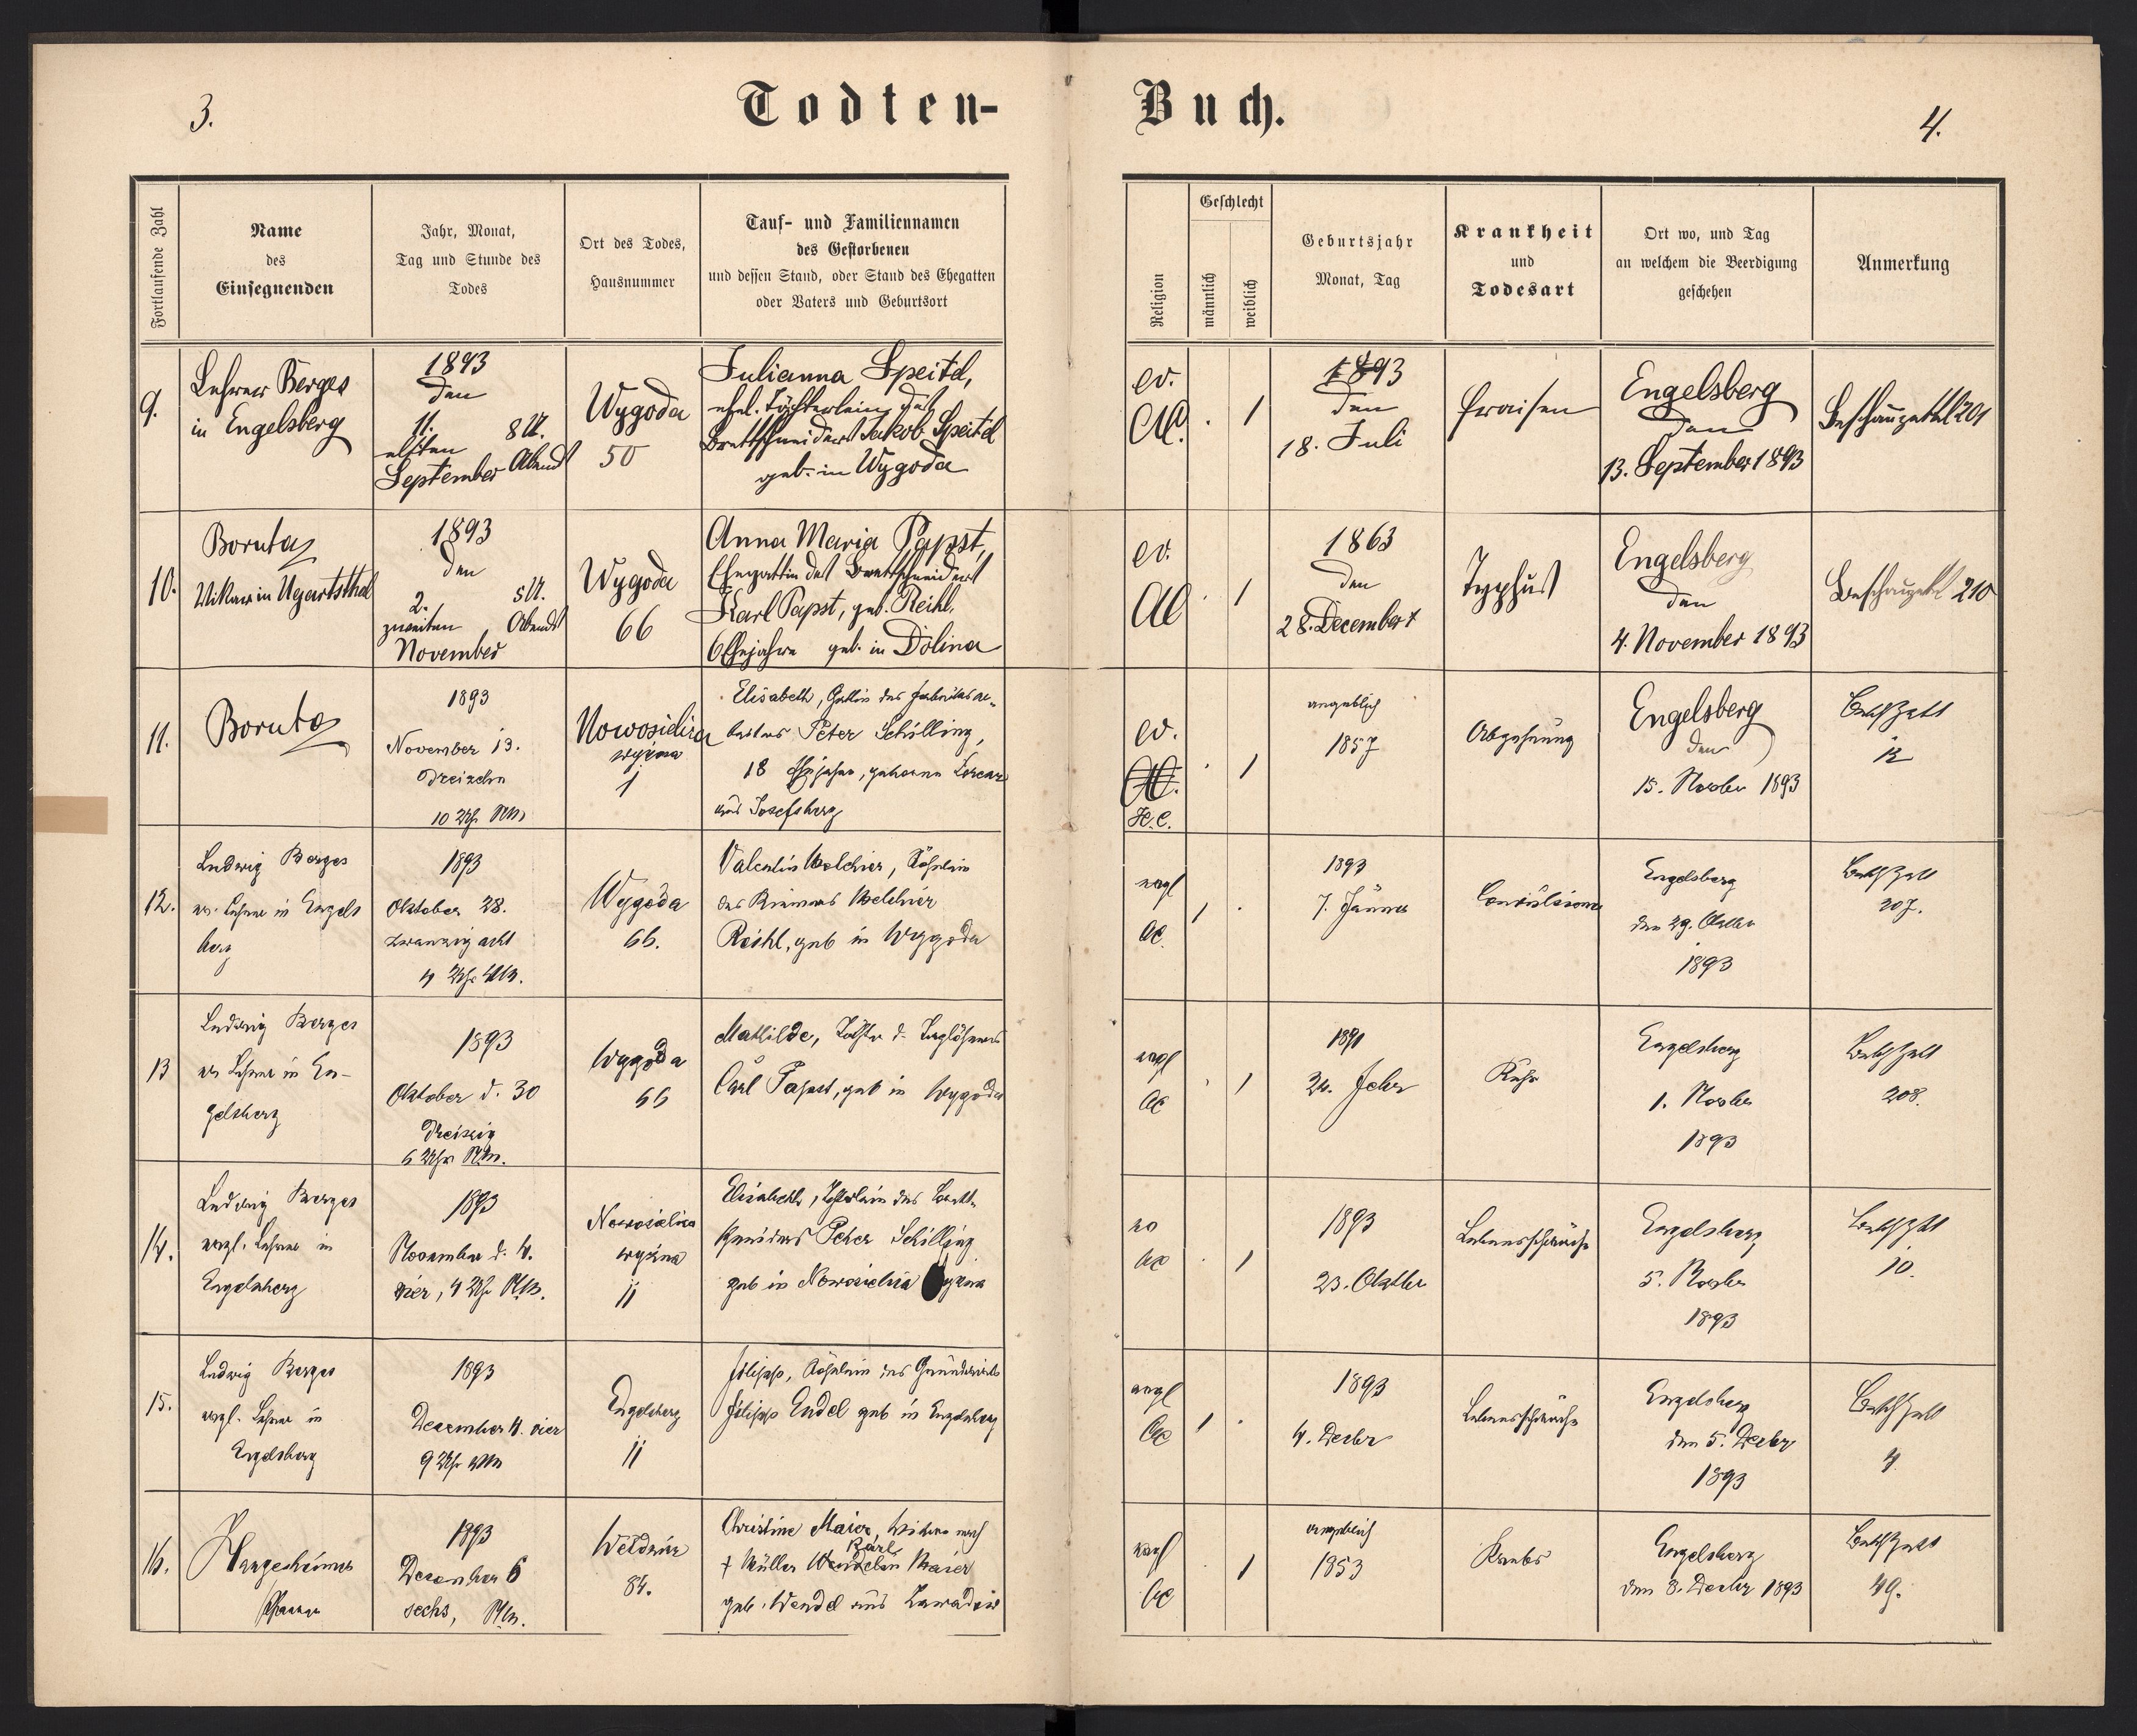 3.
Todten-
Buch.
4.
Fortlaufende Zahl
Name
des
Einsegnenden
Jahr, Monat,
Tag und Stunde des
Todes
Ort des Todes,
Hausnummer
Tauf- und Familiennamen
des Gestorbenen
und dessen Stand, oder Stand des Ehegatten
oder Vaters und Geburtsort
Religion
Geschlecht
männlich
weiblich
Geburtsjahr
Monat, Tag
Krankheit
und
Todesart
Ort wo, und Tag
an welchem die Beerdigung
geschehen
Anmerkung
9.
Lehrer Berges
in Engelsberg
1893
den
11. 8 U.
elften
September Abends
Wygoda
50
Julianna Speitel,
ehel. Töchterlein des
Brettschneiders Jakob Speitel
geb. in Wygoda
ev.
AC.
1
1893
den
18. Juli
Fraisen
Engelsberg
den
13. September 1893
Beschauzettel 201
10.
Boruta
Vikar in Ugartsthal
1893
den
2. 8 U.
zweiten Abends
November
Wygoda
66
Anna Maria Papst,
Ehegattin des Brettschneiders
Karl Papst, geb. Reihl,
6 Ehejahre geb. in Dolina
ev.
AC
1
1863
den
28. December
Typhus
Engelsberg
den
4. November 1893
210
11.
Boruta
1893
November 13.
dreizehn
10 Uhr NM
Nowosielica
wyżna
1
Elisabeth, Gattin des Fabriksar-
beiters Peter Schilling,
18 Ehejahre, geborne
aus Josefsberg
ev.
H.C.
1
angeblich
1857
Abzehrung
Engelsberg
den
15. Novber 1893
Besch Zettl
12
12.
Ludwig Berges
ev. Lehrer in Engels
berg
1893
Oktober 28.
zwanzig acht
4 Uhr NM.
Wygoda
66.
Valentin Melchior, Söhnlein
des Melchior
Reihl, geb in Wygoda
evgl
AC.
1
1893
7. Jänner
Convulsionen
Engelsberg
den 29. Oktber
1893
Besch Zettl
207.
13
Ludwig Berges
ev Lehrer in En-
gelsberg
1893
Oktober d. 30
Dreissig
6 Uhr N.M.
Wygoda
66
Mathilde, Tochter d. Taglöhners
Carl Papst, geb in Wygoda
evgl
AC
1
24. Febr
Ruhr
Engelsberg
1. Novber
1893
Besch Zettl
208.
14.
Ludwig Berges
evgl. Lehrer in
Engelsberg
1893
November d. 4.
vier, 4 Uhr N.M.
Nowosielica
wyżna
11
Elisabeth, Töchterlein des Brett-
schneiders Peter Schilling
geb in Nowosielica wyżna
ev
AC
1
1893
23. Oktber
Lebensschwäche
Engelsberg
5. Novber
1893
Besch Zettl
10.
15.
Ludwig Berges
evgl. Lehrer in
Engelsberg
1893
December 4. vier
9 Uhr
Engelsberg
11
Filipp, Söhnlein des Grundwirts
Filipp Endel geb in Engelsberg
evgl
AC
1
1893
4. Decbr
Lebensschwäche
Engelsberg
den 5. Decbr
1893
Besch Zettl
4
16.
Pfarrer
1893
December 6
sechs, N.M.
Weldzirz
84.
Christine Maier, Witwe nach
Karl
† Müller Wendelin Maier
geb. Wendel aus
evgl
AC
1
angeblich
1853
Krebs
Engelsberg
den 8. Decbr 1893
Besch Zettl
49.